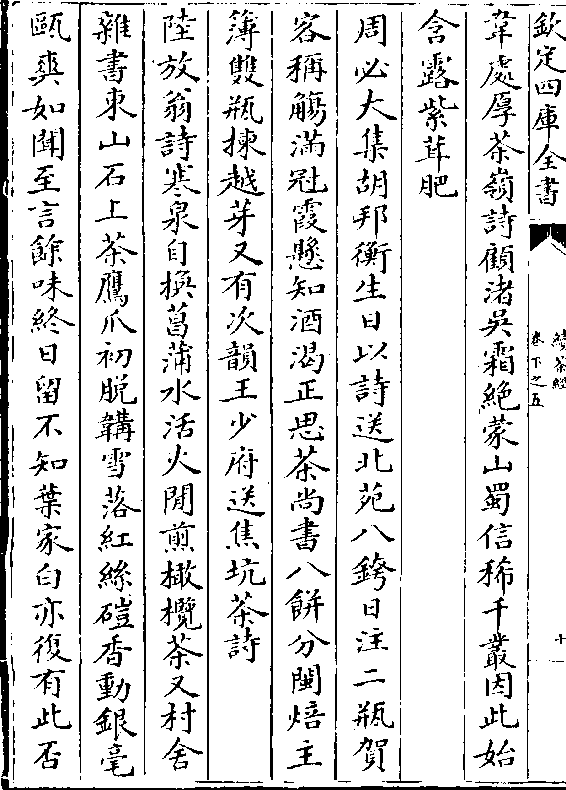 欽定四庫全書
續茶經
卷下之五
十
韋處厚茶嶺詩顧渚吳霜絶蒙山蜀信稀千叢因此始
含露紫茸肥
周必大集胡邦衡生日以詩送北苑八銙日注二瓶賀
客稱觴滿冠霞懸知酒渴正思茶尚書八餅分閩焙主
簿雙瓶揀越芽又有次韻王少府送焦坑茶詩
陸放翁詩寒泉自換菖蒲水活火閒煎橄欖茶又村舍
雜書東山石上茶鷹爪初脱韝雪落紅絲磑香動銀毫
甌爽如聞至言餘味終日留不知葉家白亦復有此否